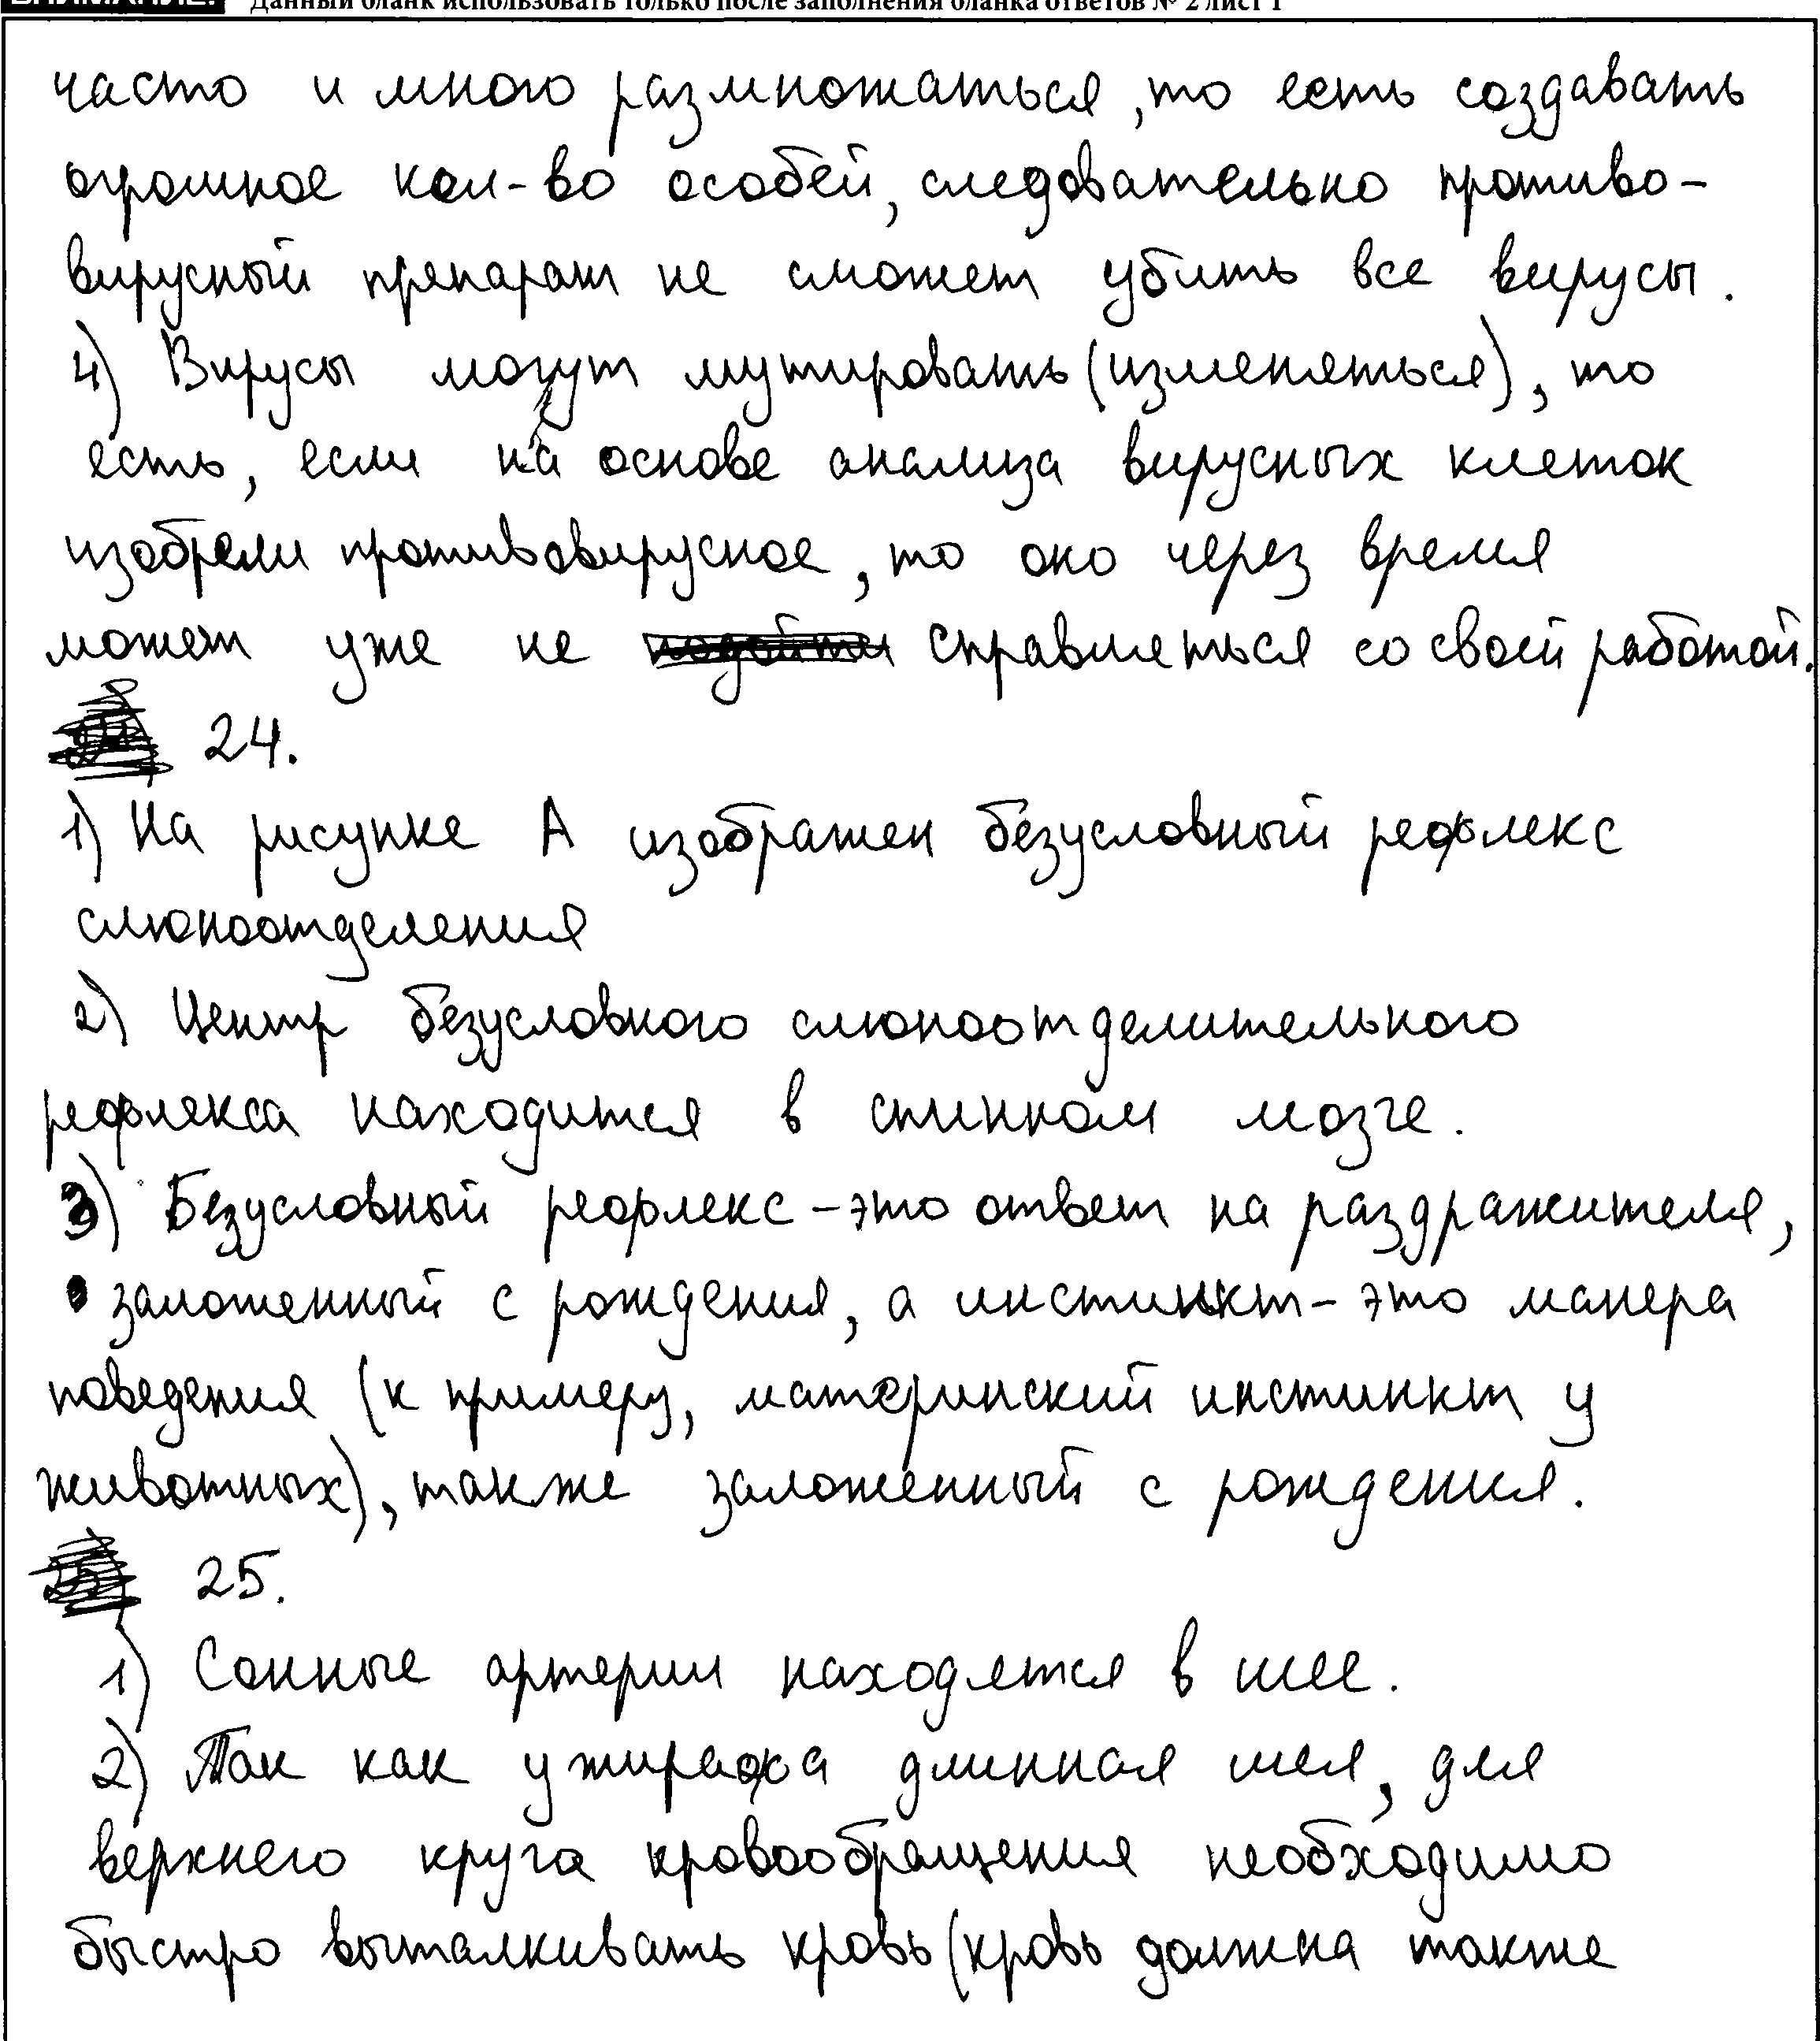 ВНИМАНИЕ! Данный бланк использовать только после заполнения бланка ответов № 2 лист 1
часто и много размножаться, то есть создавать
огромное кол-во особей, следовательно противо-
вирусный препарат не сможет убить все вирусы.
4) Вирусы могут мутировать (изменяться), то
есть, если на основе анализа вирусных клеток
изобрели противовирусное, то оно через время
может уже не подойти справляться со своей работой.
24.
1) На рисунке А изображен безусловный рефлекс
слюноотделения
2) Центр безусловного слюноотделительного
рефлекса находится в спинном мозге.
3) Безусловный рефлекс - это ответ на раздражителя,
заложенный с рождения, а инстинкт - это манера
поведения (к примеру, материнский инстинкт у
животных), также заложенный с рождения.
25.
1) Сонные артерии находятся в шее.
2) Так как у жирафа длинная шея, для
верхнего круга кровообращения необходимо
быстро выталкивать кровь (кровь должна также